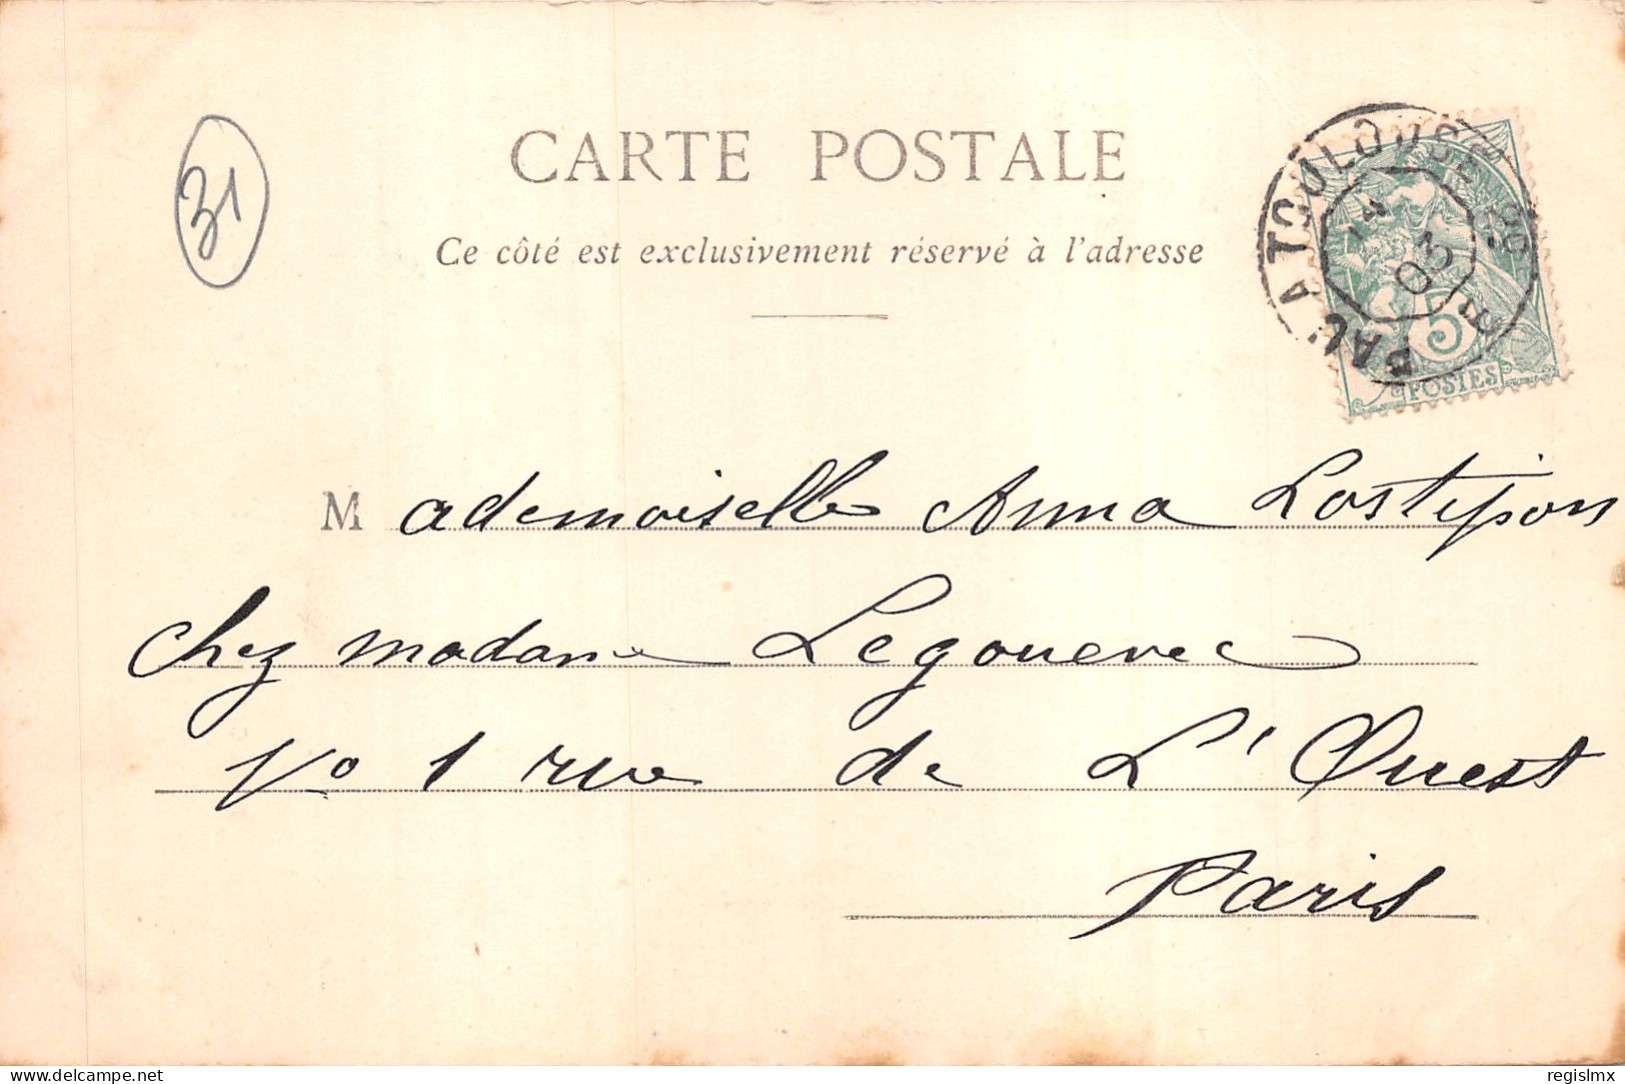 31
CARTE POSTALE
Ce côté est exclusivement réservé à l'adresse
PAU A TOULOUSE
03
5
POSTES
Mademoiselle Anna Lostipon
chez madame Legouevec
No 1 rue de L'Ouest
Paris
delcampe.net
regislmx